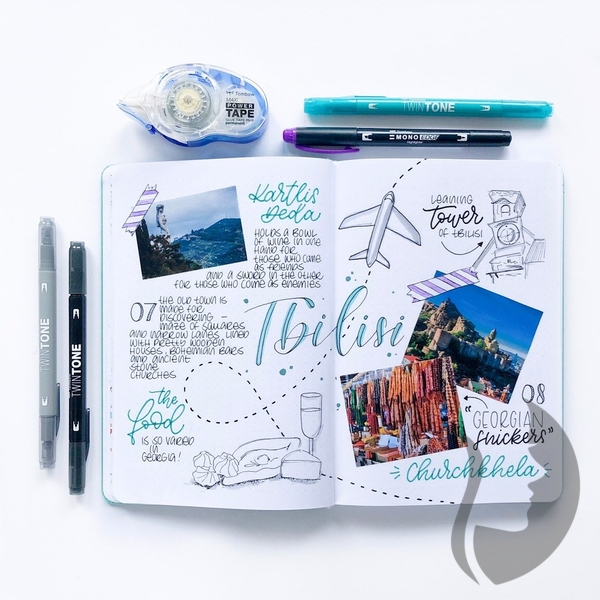 Tombow
MAX
POWER
TAPE
GLUE TAPE PEN
permanent
TWINTONE
MONO EDGE
Highlighter
TWINTONE
TWINTONE
Kartlis
Deda
HOLDS A BOWL
OF WINE IN ONE
HAND FOR
THOSE WHO COME
AS FRIENDS
AND A SWORD IN THE OTHER
FOR THOSE WHO COME AS ENEMIES
07 THE OLD TOWN IS
MADE FOR
DISCOVERING –
MAZE OF SQUARES
AND NARROW LANES LINED
WITH PRETTY WOODEN
HOUSES, BOHEMIAN BARS
AND ANCIENT
STONE
CHURCHES
the
food
IS SO VARIED
IN
GEORGIA!
Tbilisi
LEANING
tower
OF TBILISI
08
"GEORGIAN
snickers"
Churchkhela